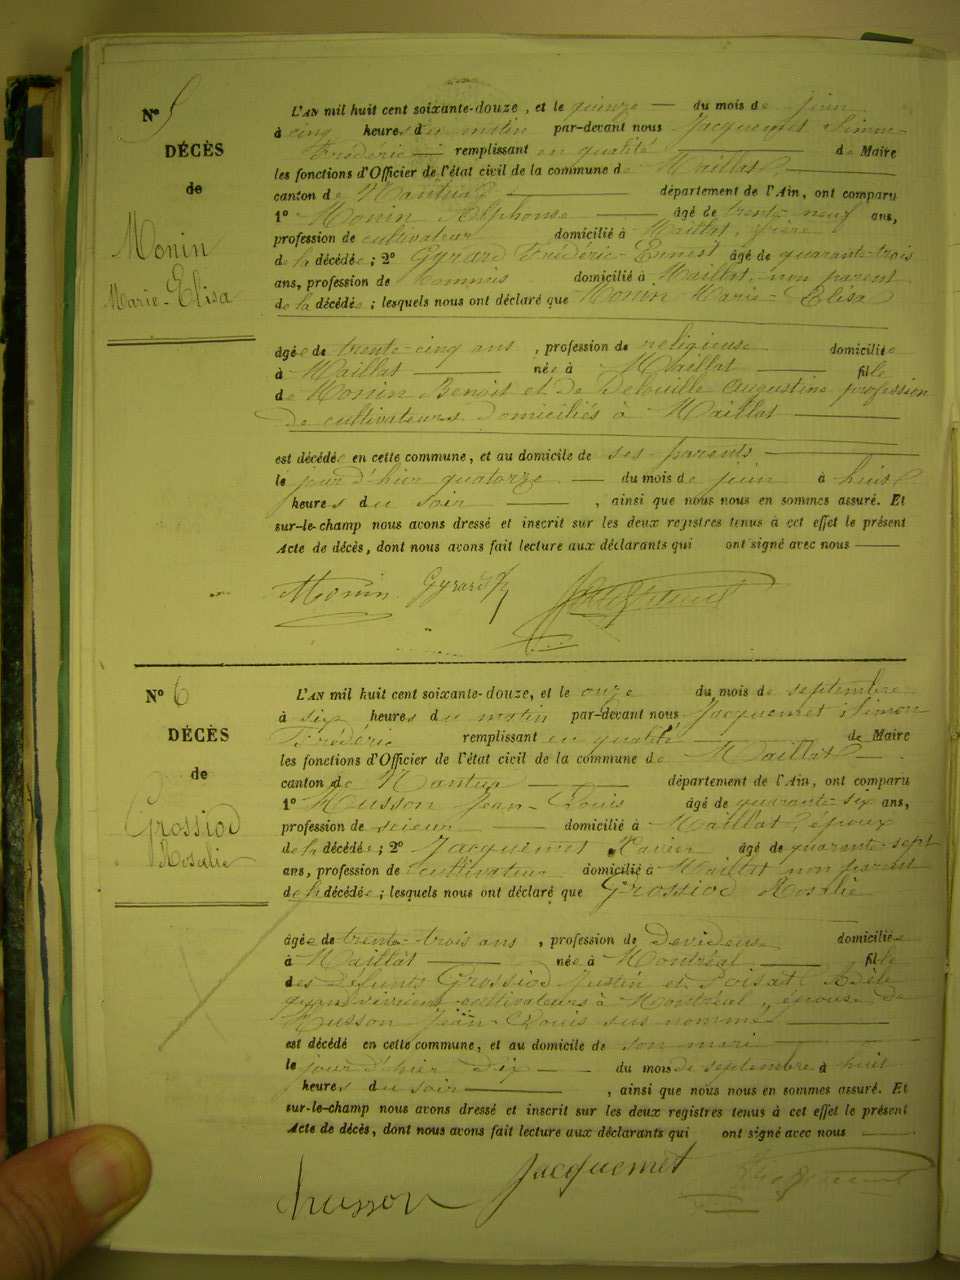 N° 5
DÉCÈS
de
Monin
Marie-Elisa
L'AN mil huit cent soixante-douze, et le quinze du mois de juin
à cinq heures du matin par-devant nous Jacquemet Simon-
Frédéric remplissant en qualité de Maire
les fonctions d'Officier de l'état civil de la commune de Maillat,
canton de Nantua département de l'Ain, ont comparu
1° Monin Alphonse âgé de trente-neuf ans,
profession de cultivateur domicilié à Maillat, frère
de la décédée ; 2° Gyrard Frédéric Ernest âgé de quarante-trois
ans, profession de commis domicilié à Maillat, non parent
de la décédée ; lesquels nous ont déclaré que Monin Marie-Elisa
âgée de trente-cinq ans , profession de religieuse domiciliée
à Maillat née à Maillat fille
de Monin Benoit et de Augustine profession
de cultivateurs domiciliés à Maillat
est décédée en cette commune, et au domicile de ses parents
le jour d'hier quatorze du mois de juin à huit
heures du soir , ainsi que nous nous en sommes assuré. Et
sur-le-champ nous avons dressé et inscrit sur les deux registres tenus à cet effet le présent
Acte de décès, dont nous avons fait lecture aux déclarants qui ont signé avec nous
Monin Gyrard
N° 6
DÉCÈS
de
Grossiod
Rosalie
L'AN mil huit cent soixante-douze, et le onze du mois de septembre
à six heures du matin par-devant nous Jacquemet Simon
Frédéric remplissant en qualité de Maire
les fonctions d'Officier de l'état civil de la commune de Maillat
canton de Nantua département de l'Ain, ont comparu
1° Husson Jean-Louis âgé de quarante-six ans,
profession de scieur domicilié à Maillat, époux
de la décédée ; 2° Jacquemet Xavier âgé de quarante-sept
ans, profession de cultivateur domicilié à Maillat non parent
de la décédée ; lesquels nous ont déclaré que Grossiod Rosalie
âgée de trente-trois ans , profession de Devideuse domiciliée
à Maillat née à Montréal fille
des défunts Grossiod Justin et Poisat Adèle
quand vivaient cultivateurs à Montréal, épouse de
Husson Jean-Louis sus nommé
est décédé en cette commune, et au domicile de son mari
le jour d'hier dix du mois de septembre à huit
heures du soir , ainsi que nous nous en sommes assuré. Et
sur-le-champ nous avons dressé et inscrit sur les deux registres tenus à cet effet le présent
Acte de décès, dont nous avons fait lecture aux déclarants qui ont signé avec nous
husson Jacquemet